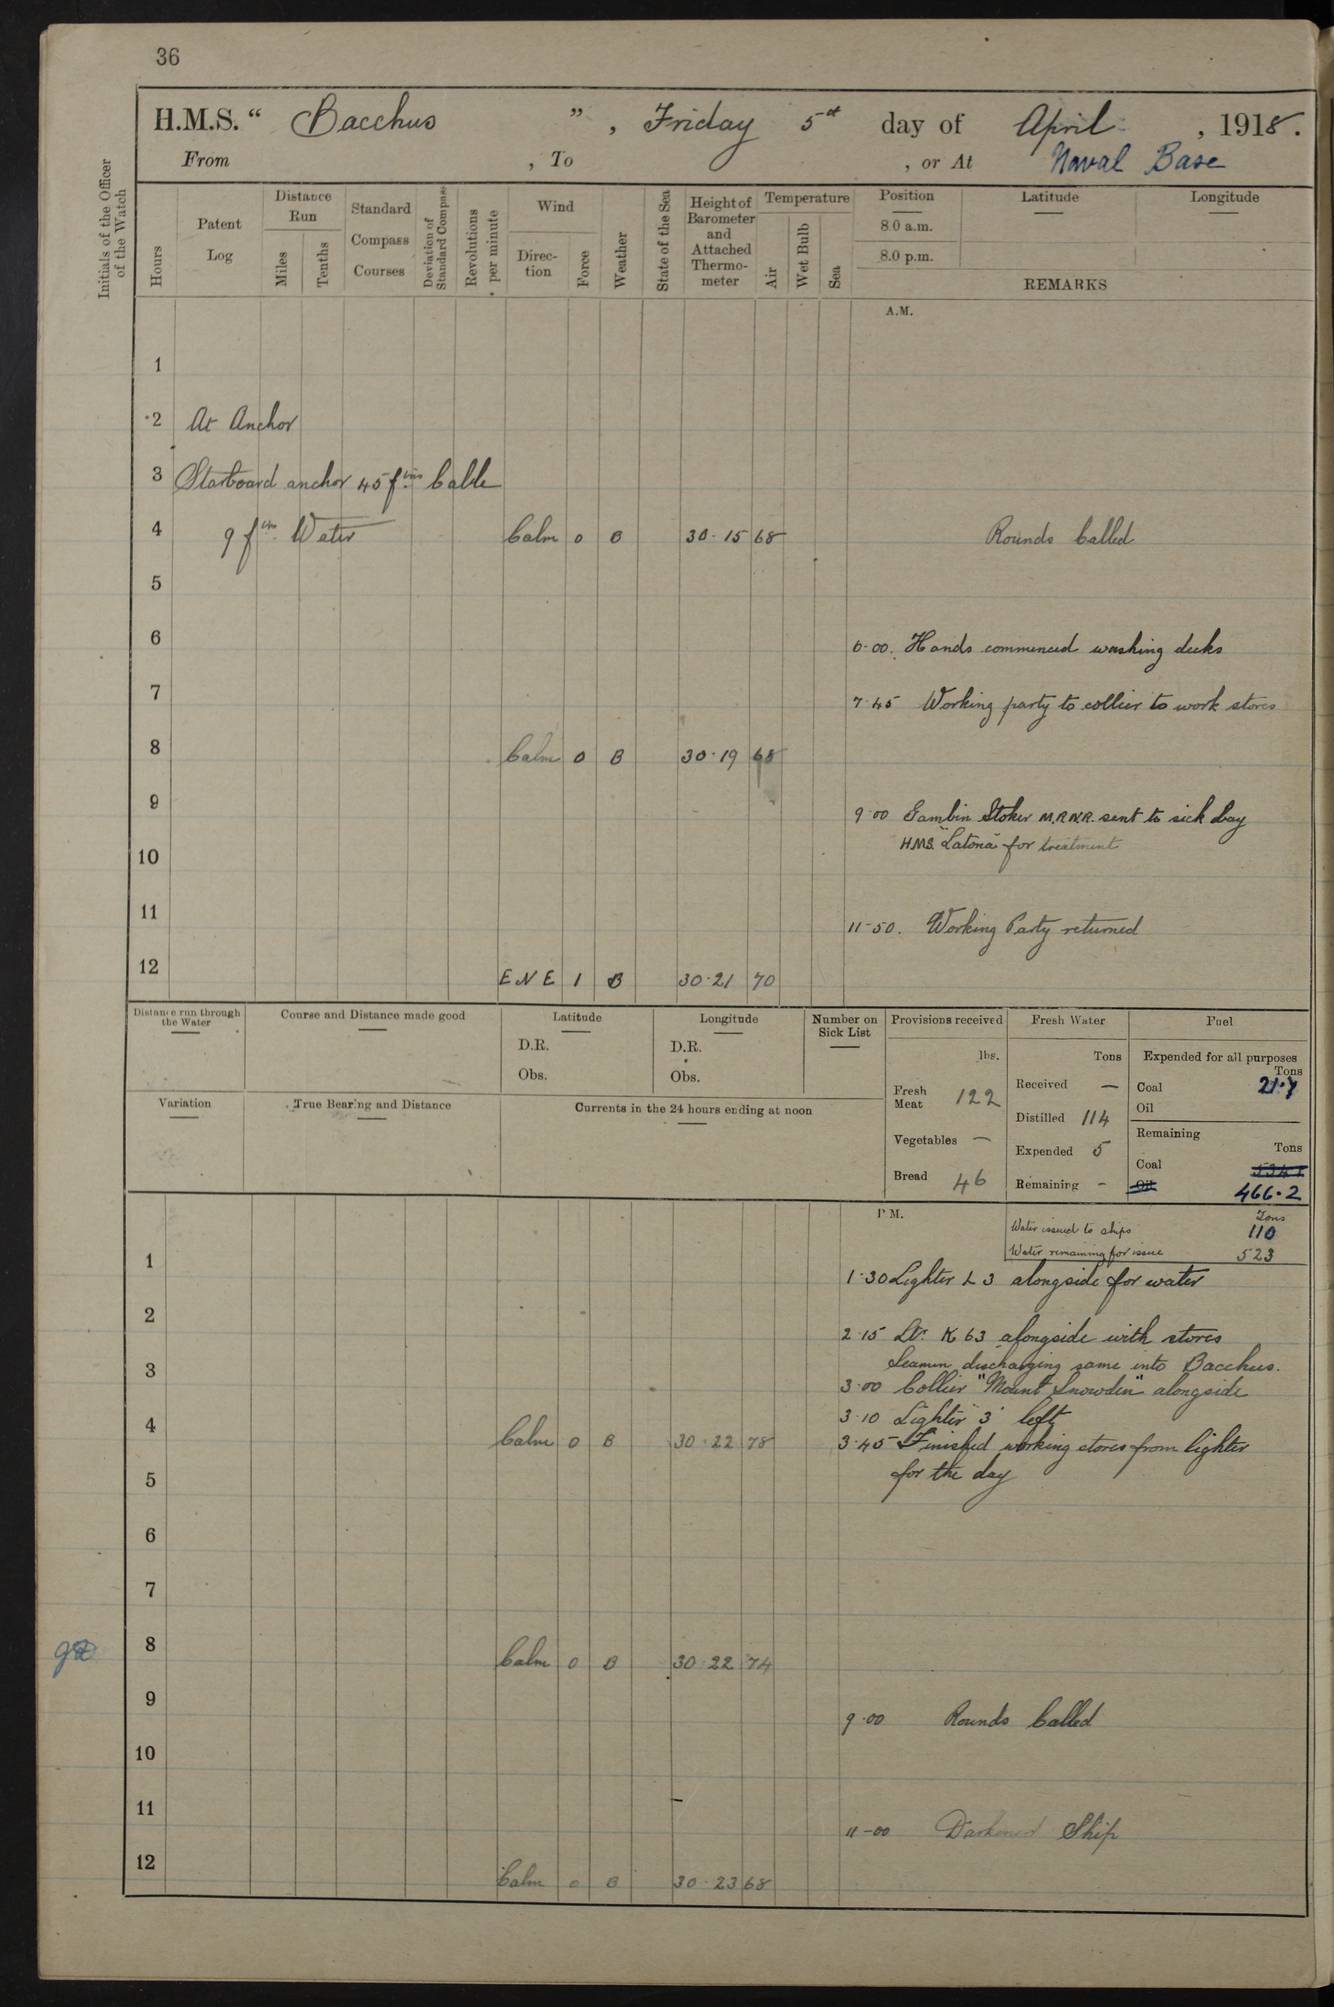 36
H.M.S. “ Bacchus ” , Friday 5th day of April , 1918.
From , To , or At Naval Base
Initials of the Officer of the Watch
Hours
Patent Log
Distance Run
Miles
Tenths
Standard Compass Courses
Deviation of Standard Compass
Revolutions per minute
Wind
Direc-tion
Force
Weather
State of the Sea
Height of Barometer and Attached Thermo-meter
Temperature
Air
Wet Bulb
Sea
Position
8.0 a.m.
8.0 p.m.
Latitude
Longitude
REMARKS
A.M.
1
2 At Anchor
3 Starboard anchor 45 fms Cable
4 9 fms Water Calm 0 B 30.15 68 Rounds Called
5
6 6.00. Hands commenced washing decks
7 7.45 Working party to collier to work stores
8 Calm 0 B 30.19 68
9 9.00 Gambin Stoker M.R.N.R. sent to sick bay
10 H.M.S. "Latona" for treatment
11 11-50. Working Party returned
12 ENE 1 B 30.21 70
Distance run through the Water
Course and Distance made good
Latitude
D.R.
Obs.
Longitude
D.R.
Obs.
Number on Sick List
Variation
True Bearing and Distance
Currents in the 24 hours ending at noon
Provisions received
lbs.
Fresh Meat 122
Vegetables —
Bread 46
Fresh Water
Tons
Received —
Distilled 114
Expended 5
Remaining -
Fuel
Expended for all purposes
Tons
Coal 21.7
Oil
Remaining
Tons
Coal
Oil 466.2
P.M.
Tons
Water issued to ships 110
Water remaining for issue 523
1 1.30 Lighter L 3 alongside for water
2 2.15 Ltr. K 63 alongside with stores
Seamen discharging same into Bacchus.
3 3.00 Collier "Mount Snowden" alongside
3.10 Lighter 3 left
4 Calm 0 B 30.22 78 3.45 Finished working stores from lighter
5 for the day
6
7
8 Calm 0 B 30.22 74
9 9.00 Rounds Called
10
11 11-00 Darkened Ship
12 Calm 0 B 30.23 68